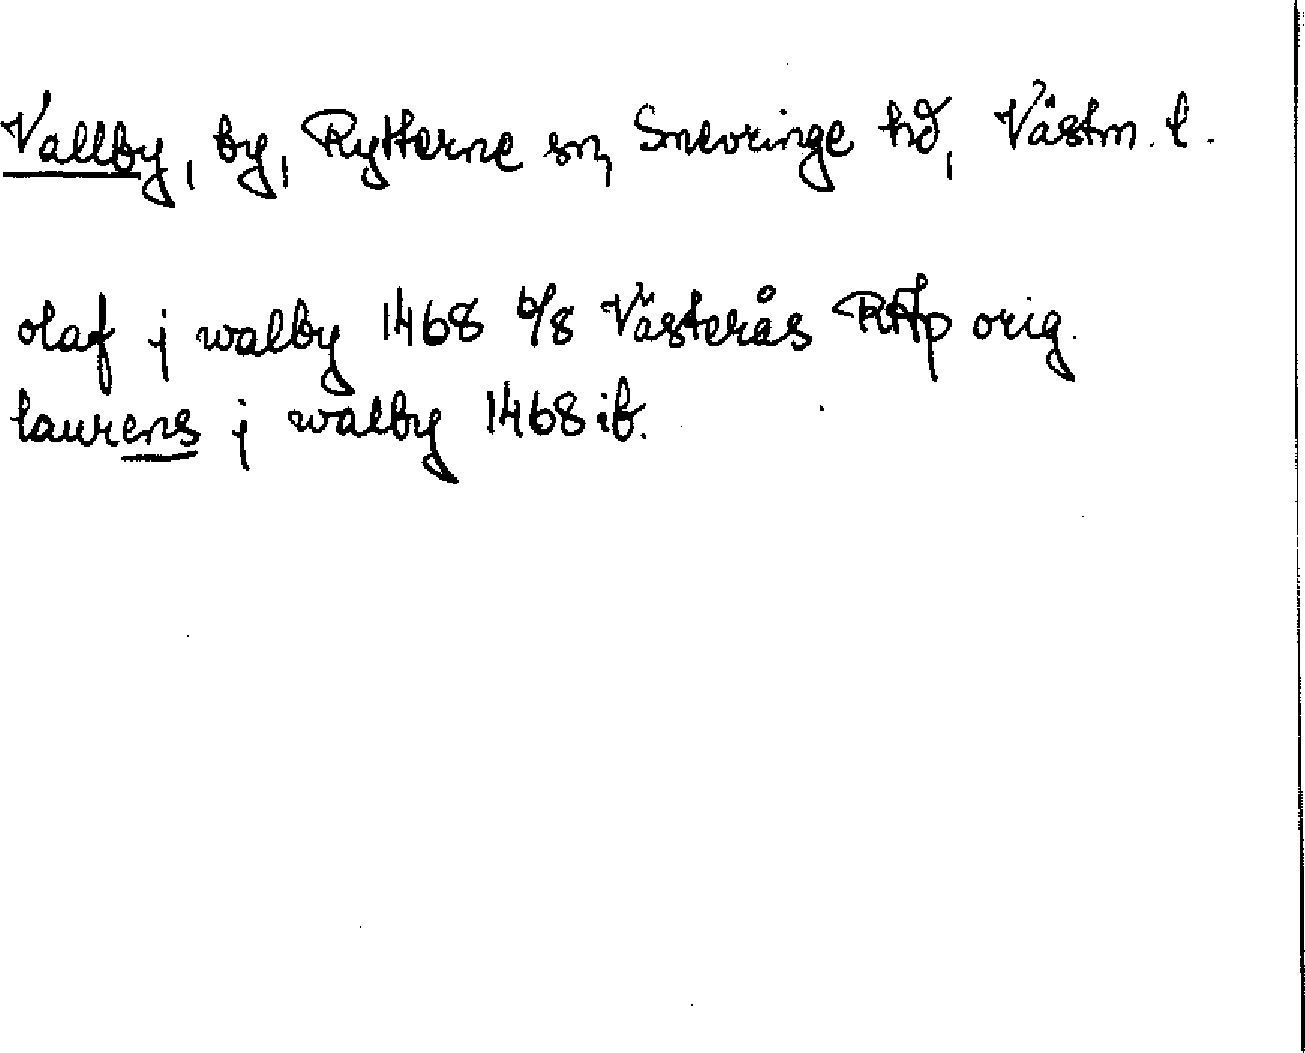 Vallby, by, Rytterne sn, Snevringe hd, Västm. l.
olaf j walby 1468 6/8 Västerås RAp orig.
laurens j walby 1468 ib.